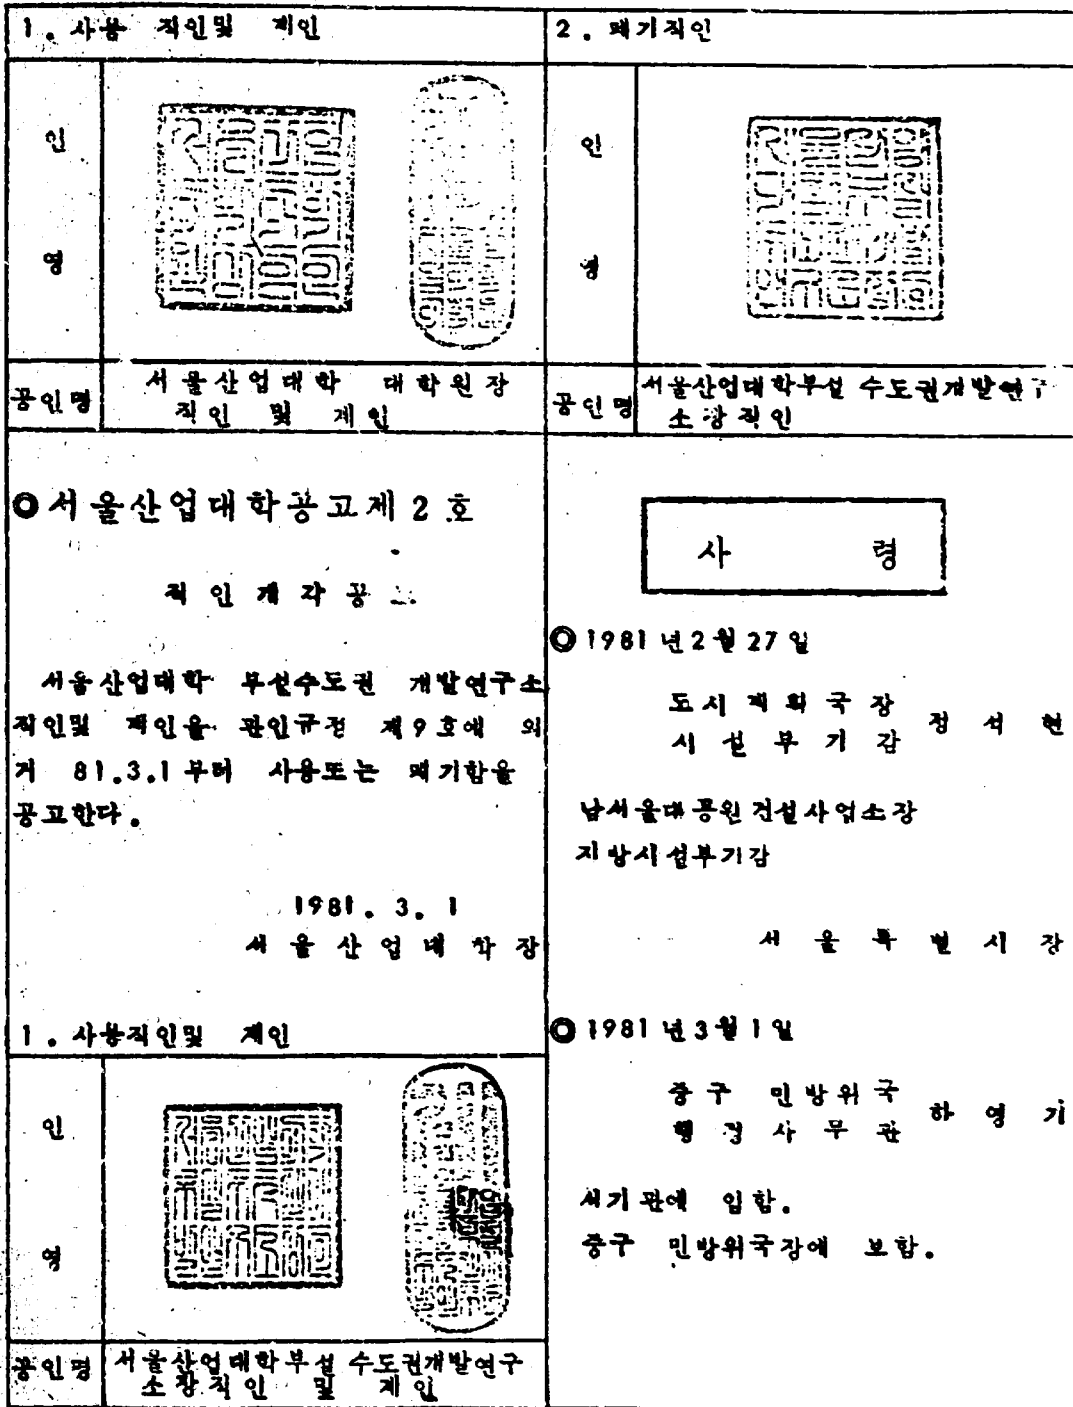 1. 사용 직인및 계인
인
영
공인명
서울산업대학 대학원장
직인 및 계인
◎서울산업대학공고제2호
직인개각공
서울산업대학 부설수도권 개발연구소
직인및 계인을 관인규정 제9호에 의
거 81.3.1부터 사용또는 폐기함을
공고한다.
1981. 3. 1
서울산업대학장
1. 사용직인및 계인
인
영
공인명
서울산업대학부설 수도권개발연구
소장직인 및 계인
2. 폐기직인
인
영
공인명
서울산업대학부설 수도권개발연구
소장직인
사 령
◎1981년2월27일
도시계획국장
시설부기감
정석현
남서울대공원건설사업소장
지방시설부기감
서울특별시장
◎1981년3월1일
중구 민방위국
행정사무관
하영기
서기관에 임함.
중구 민방위국장에 보함.